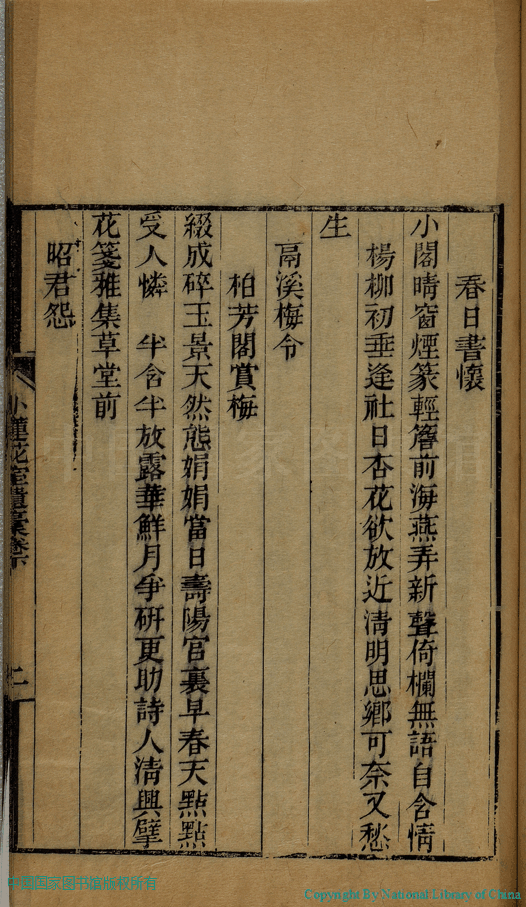 春日書懷
小閣晴窗煙篆輕簷前海燕弄新聲倚欄無語自含情
楊柳初垂逢社日杏花欲放近清明思鄉可奈又愁
生
鬲溪梅令
柏芳閣賞梅
綴成碎玉景天然態娟娟當日壽陽宮裏早春天點點
受人憐　半含半放露華鮮月爭妍更助詩人清興擘
花箋雅集草堂前
昭君怨
小蓮花室遺稾卷下
二
中国国家图书馆版权所有
Copyright By National Library of China